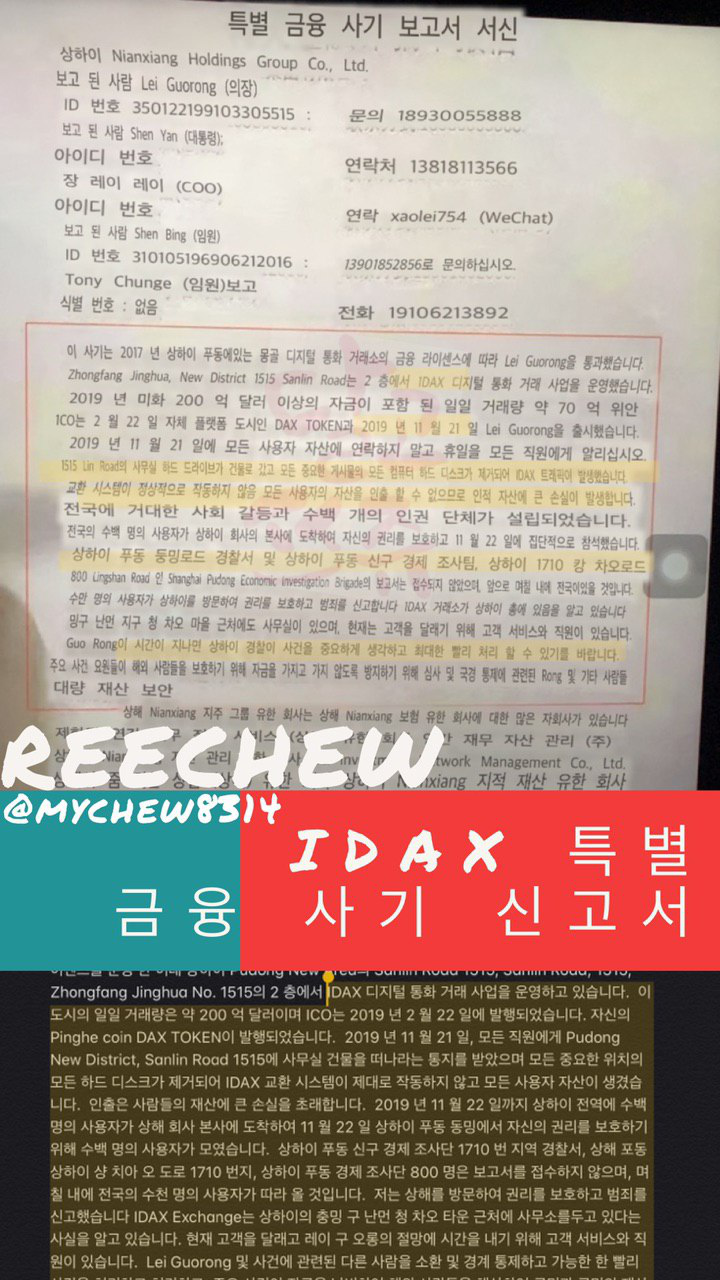 특별 금융 사기 보고서 서신
상하이 Nianxiang Holdings Group Co., Ltd.
보고 된 사람 Lei Guorong (의장)
ID 번호 350122199103305515 : 문의 18930055888
보고 된 사람 Shen Yan (대통령);
아이디 번호 연락처 13818113566
장 레이 레이 (COO)
아이디 번호 연락 xaolei754 (WeChat)
보고 된 사람 Shen Bing (임원)
ID 번호 310105196906212016 : 13901852856로 문의하십시오.
Tony Chunge (임원)보고
식별 번호 : 없음 전화 19106213892
이 사기는 2017 년 상하이 푸동에있는 몽골 디지털 통화 거래소의 금융 라이센스에 따라 Lei Guorong을 통과했습니다.
Zhongfang Jinghua, New District 1515 Sanlin Road는 2 층에서 IDAX 디지털 통화 거래 사업을 운영했습니다.
2019 년 미화 200 억 달러 이상의 자금이 포함 된 일일 거래량 약 70 억 위안
ICO는 2 월 22 일 자체 플랫폼 도시인 DAX TOKEN과 2019 년 11 월 21 일 Lei Guorong을 출시했습니다.
2019 년 11 월 21 일에 모든 사용자 자산에 연락하지 말고 휴일을 모든 직원에게 알리십시오.
1515 Lin Road의 사무실 하드 드라이브가 건물로 갔고 모든 중요한 게시물의 모든 컴퓨터 하드 디스크가 제거되어 IDAX 트래픽이 발생했습니다.
교환 시스템이 정상적으로 작동하지 않음 모든 사용자의 자산을 인출 할 수 없으므로 인적 자산에 큰 손실이 발생합니다.
전국에 거대한 사회 갈등과 수백 개의 인권 단체가 설립되었습니다.
전국의 수백 명의 사용자가 상하이 회사의 본사에 도착하여 자신의 권리를 보호하고 11 월 22 일에 집단적으로 참석했습니다.
상하이 푸동 둥밍로드 경찰서 및 상하이 푸동 신구 경제 조사팀, 상하이 1710 캉 차오로드
800 Lingshan Road 인 Shanghai Pudong Economic Investigation Brigade의 보고서는 접수되지 않았으며, 앞으로 며칠 내에 전국이있을 것입니다.
수만 명의 사용자가 상하이를 방문하여 권리를 보호하고 범죄를 신고합니다 IDAX 거래소가 상하이 총에 있음을 알고 있습니다
밍구 난먼 지구 청 차오 마을 근처에도 사무실이 있으며, 현재는 고객을 달래기 위해 고객 서비스와 직원이 있습니다.
Guo Rong이 시간이 지나면 상하이 경찰이 사건을 중요하게 생각하고 최대한 빨리 처리 할 수 있기를 바랍니다.
주요 사건 요원들이 해외 사람들을 보호하기 위해 자금을 가지고 가지 않도록 방지하기 위해 심사 및 국경 통제에 관련된 Rong 및 기타 사람들
대량 재산 보안
상해 Nianxiang 지주 그룹 유한 회사는 상해 Nianxiang 보험 유한 회사에 대한 많은 자회사가 있습니다
재무 자산 관리 (주)
Network Management Co., Ltd.
Nianxiang 지적 재산 유한 회사
REECHEW
@MYCHEW8314
IDAX 특별
금융 사기 신고서
Zhongfang Jinghua No. 1515의 2 층에서 IDAX 디지털 통화 거래 사업을 운영하고 있습니다. 이
도시의 일일 거래량은 약 200 억 달러이며 ICO는 2019 년 2 월 22 일에 발행되었습니다. 자신의
Pinghe coin DAX TOKEN이 발행되었습니다. 2019 년 11 월 21 일, 모든 직원에게 Pudong
New District, Sanlin Road 1515에 사무실 건물을 떠나라는 통지를 받았으며 모든 중요한 위치의
모든 하드 디스크가 제거되어 IDAX 교환 시스템이 제대로 작동하지 않고 모든 사용자 자산이 생겼습
니다. 인출은 사람들의 재산에 큰 손실을 초래합니다. 2019 년 11 월 22 일까지 상하이 전역에 수백
명의 사용자가 상해 회사 본사에 도착하여 11 월 22 일 상하이 푸동 동밍에서 자신의 권리를 보호하기
위해 수백 명의 사용자가 모였습니다. 상하이 푸동 신구 경제 조사단 1710 번 지역 경찰서, 상해 포동
상하이 샹 치아 오 도로 1710 번지, 상하이 푸동 경제 조사단 800 명은 보고서를 접수하지 않으며, 며
칠 내에 전국의 수천 명의 사용자가 따라 올 것입니다. 저는 상해를 방문하여 권리를 보호하고 범죄를
신고했습니다 IDAX Exchange는 상하이의 충밍 구 난먼 청 차오 타운 근처에 사무소를두고 있다는
사실을 알고 있습니다. 현재 고객을 달래고 레이 구 오롱의 절망에 시간을 내기 위해 고객 서비스와 직
원이 있습니다. Lei Guorong 및 사건에 관련된 다른 사람을 소환 및 경계 통제하고 가능한 한 빨리